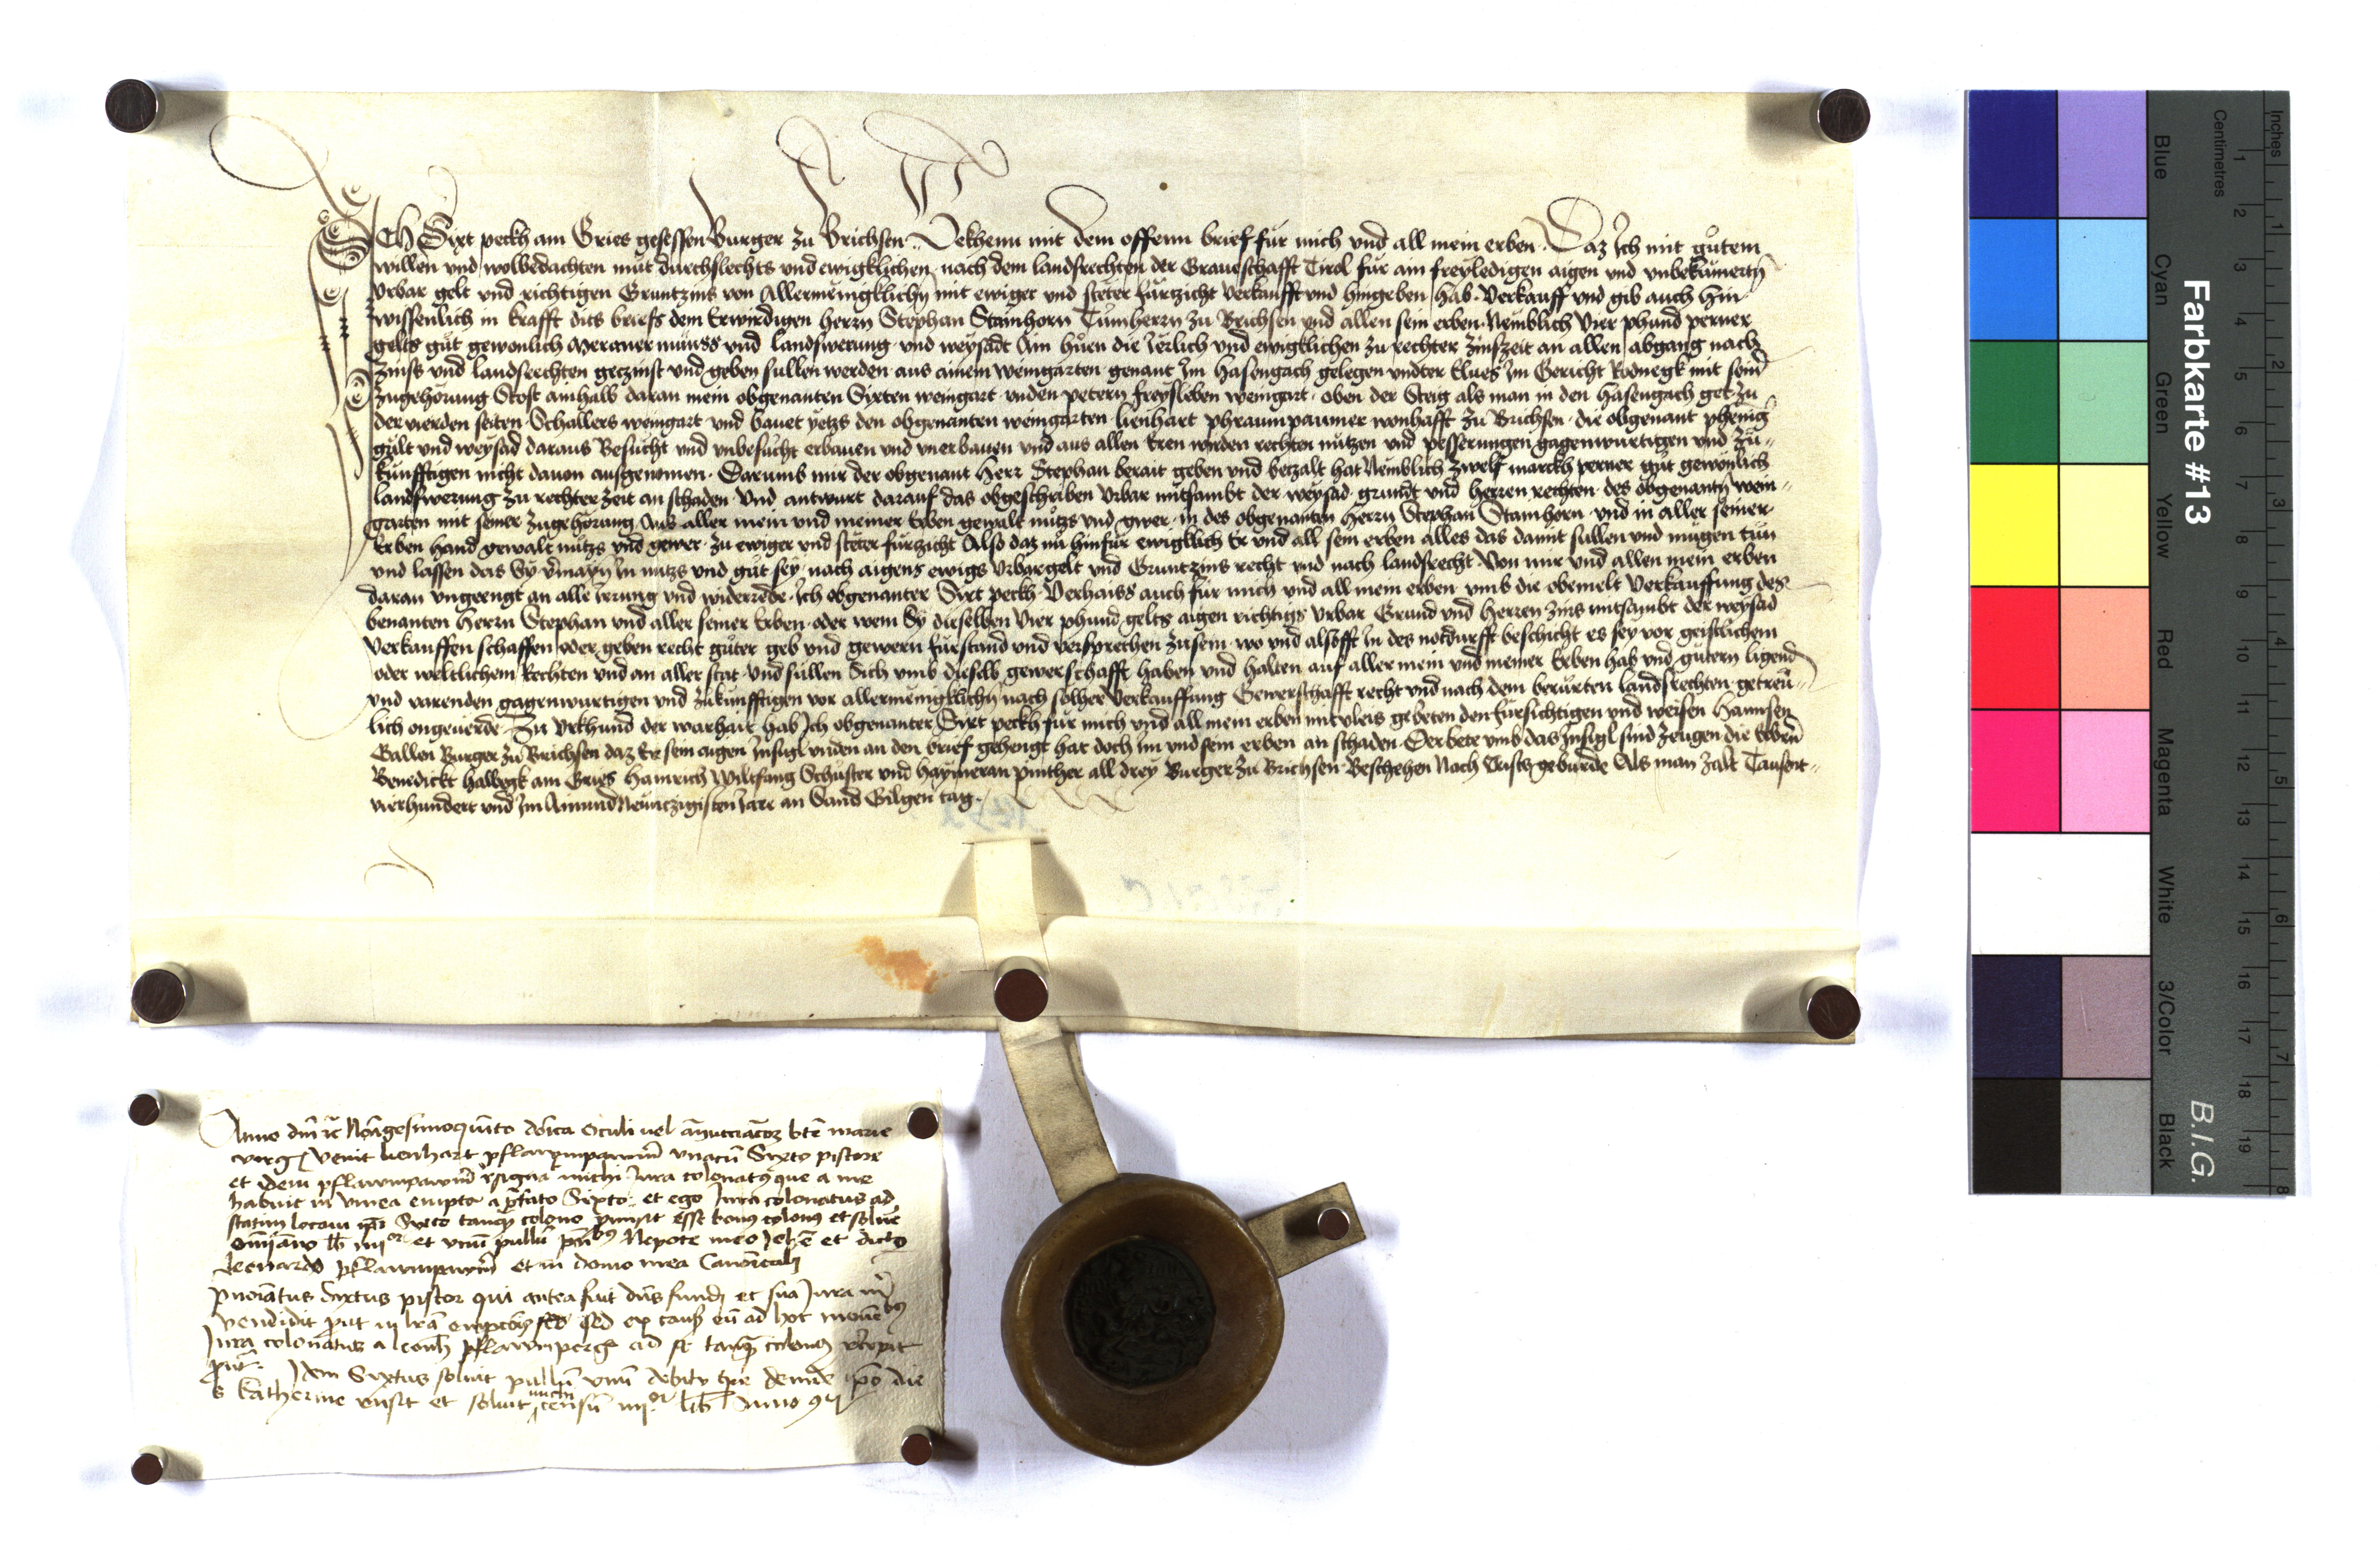 Ich Sixt peckh am Gries gesessen Burger zu Brichsen Bekhenn mit dem offenn brief für mich und all mein erben Daz Ich mit guͦtem
willen und wolbedachten muͦt durchslechts und ewigklichen nach dem landsrechten der Graueschafft Tirol für ain freyledigen aigen und unbekümertn
Urbar gelt und richtigen Gruntzins von Allermenigklichn mit ewiger und steter fürtzicht verkaufft und hingeben hab Verkauff und gib auch hin
wissenlich in krafft dits briefs dem Erwirdigen herrn Stephan Stainhorn Tuͦmherrn zu Brichsen und allen sein erben Nemblich Vier phund perner
gelts guͦt gewonlich Meraner münss und landswerung und weysadt Ain huͦen die Ierlich und ewigklichen zu rechter zinszeit an allen abgang nach
zinss und landsrechten gezinst und geben sullen werden aus ainem weingarten genant Im Hasengach gelegen undter Clues Im Gericht Rodnegk mit seinr
zugehörung Stost ainhalb daran mein obgenanten Sixten weingart unden petern freysleben weingart oben der Steig als man in den Hasengach get zu
der vierden seiten Schallers weingart und bauet yetzs den obgenanten weingarten lienhart phraumpaumer wonhafft zu Brichsen die obgenant phenig
gült und weysad daraus Besucht und unbesucht erbauen und unerbauen und aus allen Eren wirden rechten nutzen und pesserungen gagenwurtigen und zu
kunfftigen nicht dauon ausgenomen Darumb mir der obgenant Herr Stephan berait geben und betzalt hat Nemblich zwelf marckh perner guͦt gewonlich
landswerung zu rechter zeit an schaden Und antwurt darauf das obgeschriben Urbar mitsambt der weysad grundt und herren rechten des obgenantn wein
garten mit seiner zugehörung Aus aller mein und meiner Erben gewalt nutzs und gwer in des obgenanten Herrn Stephan Stainhorn und in aller seiner
Erben hand gewalt nutzs und gewer zu ewiger und steter fürzicht Also daz nu hinfür ewigklich Er und all sein erben alles das damit sullen und mugen tun
und lassen das Sy in nutzs und guͦt sey nach aigens ewigs Urbargelt und Gruntzins recht und nach landsrecht Von mir und allen mein erben
daran ungeengt an alle irrung und widerrede Ich obgenanter Sixt peckh Verhaiss auch für mich und all mein erben umb die obemelt Verkauffung des
benanten Herrn Stephan und aller seiner Erben oder wem Sy dieselben Vier phund gelts aigen richtigs Urbar Grund und Herren zins mitsambt der weysad
Verkauffen schaffen oder geben recht guͦter geb und gewern fürstand und versprechen zusein wo und alsofft In des notdurfft beschicht es sey vor geistlichem
oder weltlichem Rechten und an aller stat Und sullen Sich umb dieselb gewerschafft haben und halten auf aller mein und meiner Erben hab und guͦtern ligend
und varenden gagenwurtigen und zukunfftigen vor allermenigklichn nach solher Verkauffung Gewerschafft recht und nach dem berurten landsrechten getreu
lich ongeuerde Zu Urkhund der warhait hab Ich obgenanter Sixt peckh für mich und all mein erben mit vleis gebeten den fürsichtigen und weisen Hannsen
Gallen Burger zu Brichsen daz Er sein aigen Insigl unden an den brief gehengt hat doch im und sein erben an schaden Der bete umb das Insigl sind zeugen die Erbern
Benedickt hallegk am Gries Hainrich Wiltfang Schuster und Haymeran Pinther all drey Burger zu Brichsen Beschehen Nach Cristi geburde Als man zalt Tausent
vierhundert und Im Ainundneuntzigisten Iare an Sand Gilgen tag
Anno dni rc Nonagesimoquinto dnica Oculi vel annuncciacoz bte marie
virg Venit lienhart pflawmpawm unacu Sixto pistore
et idem pflawmpawm rsigna michi Iura colonatus que a me
habuit in vinea empta a pfato Sixto et ego Iura colonatus ad
statim locavi Sixto tanq colono pmisit esse bonus colonus et solue
omi anno lb iiii or et unu pullu pntibus Nepote meo Iohe et dicto
Leonardo pflawmpawm et in domo mea Canonicali
pnoiatus Sixtus pistor qui antea fuit dns fundi et sua Iura
vendidit put in lra empcois sed ex causis eu ad hoc mouetibus
Iura colonatus a leonh pflawmperge ad se tanq colonus recepit
Idem Sixtus soluit pullu unu debito tpe deinde ipo die
s katherine venit et soluit censu iiii or lib Anno